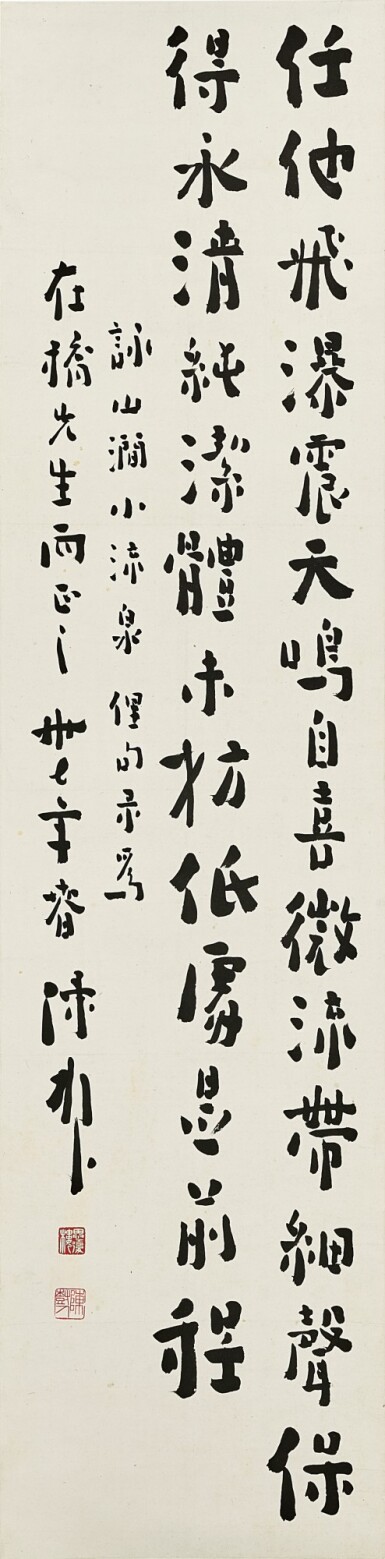 任他飛瀑震天鳴自喜微流帶細聲保
得永清純潔體未妨低處是前程
詠山澗小流泉俚句录為
在橋先生两正之卅七年春陳彰